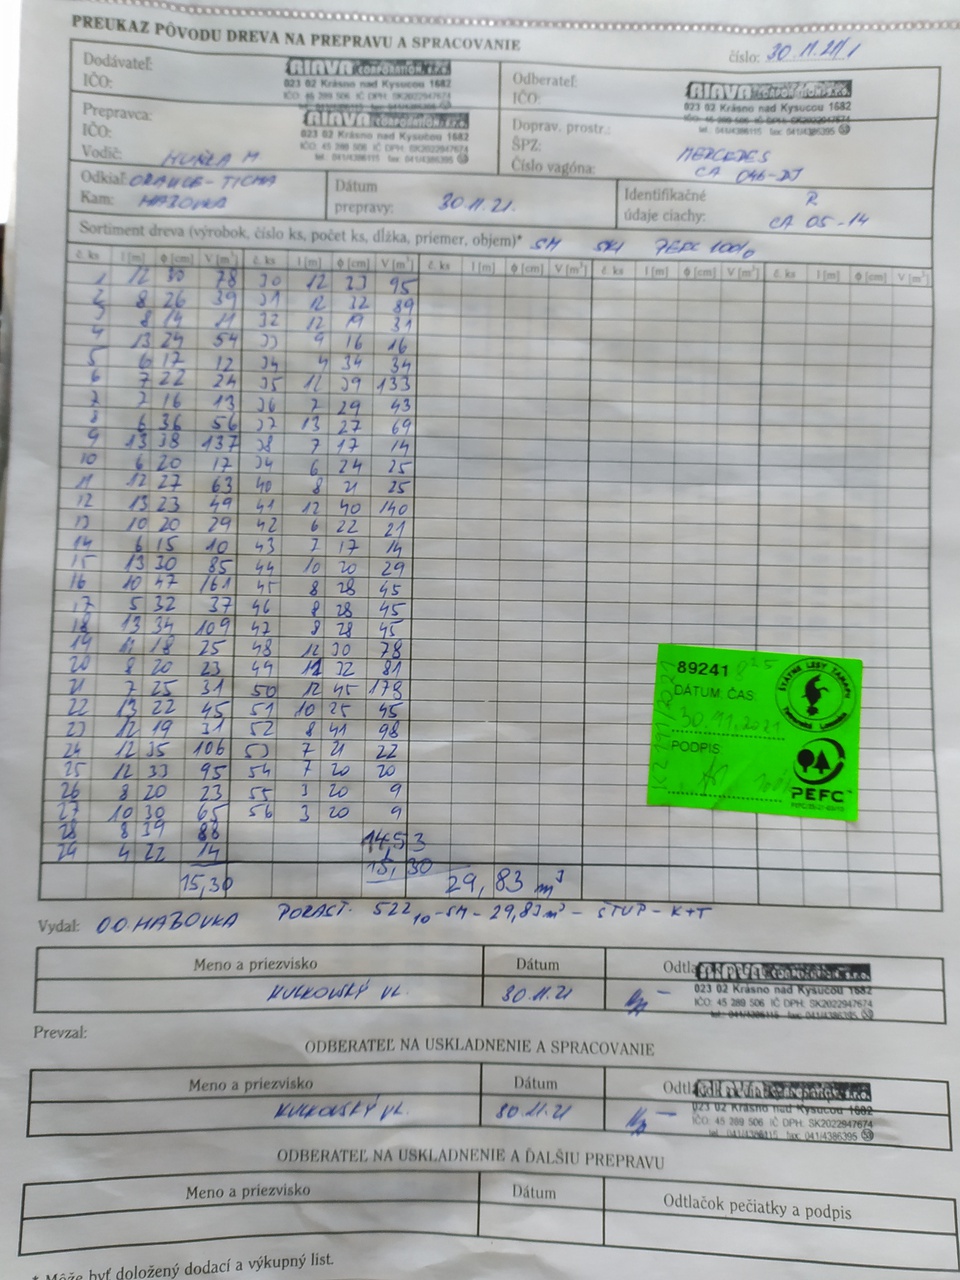 PREUKAZ PÔVODU DREVA NA PREPRAVU A SPRACOVANIE
číslo: 30.11.21/1
Dodávateľ: RIAVA CORPORATION, s.r.o.
IČO: 023 02 Krásno nad Kysucou 1682
IČO: 45 289 506 IČ DPH: SK2022947674
Odberateľ: RIAVA CORPORATION s.r.o.
IČO: 023 02 Krásno nad Kysucou 1682
IČO: 45 289 506 IČ DPH: SK2022947674
tel.: 041/4386115 fax: 041/4386395
Prepravca: RIAVA CORPORATION, s.r.o.
IČO: 023 02 Krásno nad Kysucou 1682
IČO: 45 289 506 IČ DPH: SK2022947674
tel.: 041/4386115 fax: 041/4386395
Vodič: M
Doprav. prostr.: MERCEDES
ŠPZ: CA 046-DJ
Číslo vagóna:
Odkiaľ: ORAVICE-TICHÁ
Kam: HAZOVKA
Dátum prepravy: 30.11.21.
Identifikačné R
údaje ciachy: CA 05-14
Sortiment dreva (výrobok, číslo ks, počet ks, dĺžka, priemer, objem)* SM PEFC 100%
č. ks l [m] ϕ [cm] V [m³] č. ks l [m] ϕ [cm] V [m³] č. ks l [m] ϕ [cm] V [m³] č. ks l [m] ϕ [cm] V [m³] č. ks l [m] ϕ [cm] V [m³]
1 12 30 78 30 12 33 95
2 8 26 39 31 12 32 89
3 8 14 11 32 12 19 31
4 13 24 54 33 9 16 16
5 6 17 12 34 4 34 34
6 7 22 24 35 12 39 133
7 7 16 13 36 7 29 43
8 6 36 56 37 13 27 69
9 13 38 137 38 7 17 14
10 6 20 17 39 6 24 25
11 12 27 63 40 8 21 25
12 13 23 49 41 12 40 140
13 10 20 29 42 6 22 21
14 6 15 10 43 7 17 14
15 13 30 85 44 10 20 29
16 10 47 161 45 8 28 45
17 5 32 37 46 8 28 45
18 13 34 109 47 8 28 45
19 11 18 25 48 12 30 78
20 8 20 23 49 12 32 81
21 7 25 31 50 12 45 178
22 13 22 45 51 10 25 45
23 12 19 31 52 8 41 98
24 12 35 106 53 7 21 22
25 12 33 95 54 7 20 20
26 8 20 23 55 3 20 9
27 10 30 65 56 3 20 9
28 8 39 88 14,53
29 4 22 14 15,30
15,30 29,83 m³
89241
DÁTUM ČAS
30.11.2021
PODPIS
ŠTÁTNE LESY TANAPU
Tatranská Lomnica
PEFC
Vydal: OO HAZOVKA PORAST. 522 10-SM-29,83m³ - ŠTVP - K+T
Meno a priezvisko Dátum
KULKOVSKÝ VL. 30.11.21
RIAVA CORPORATION s.r.o.
023 02 Krásno nad Kysucou 1682
IČO: 45 289 506 IČ DPH: SK2022947674
tel.: 041/4386115 fax: 041/4386395
Prevzal:
ODBERATEĽ NA USKLADNENIE A SPRACOVANIE
Meno a priezvisko Dátum
KULKOVSKÝ VL. 30.11.21
023 02 Krásno nad Kysucou 1682
IČO: 45 289 506 IČ DPH: SK2022947674
tel.: 041/4386115 fax: 041/4386395
ODBERATEĽ NA USKLADNENIE A ĎALŠIU PREPRAVU
Meno a priezvisko Dátum Odtlačok pečiatky a podpis
* Môže byť doložený dodací a výkupný list.